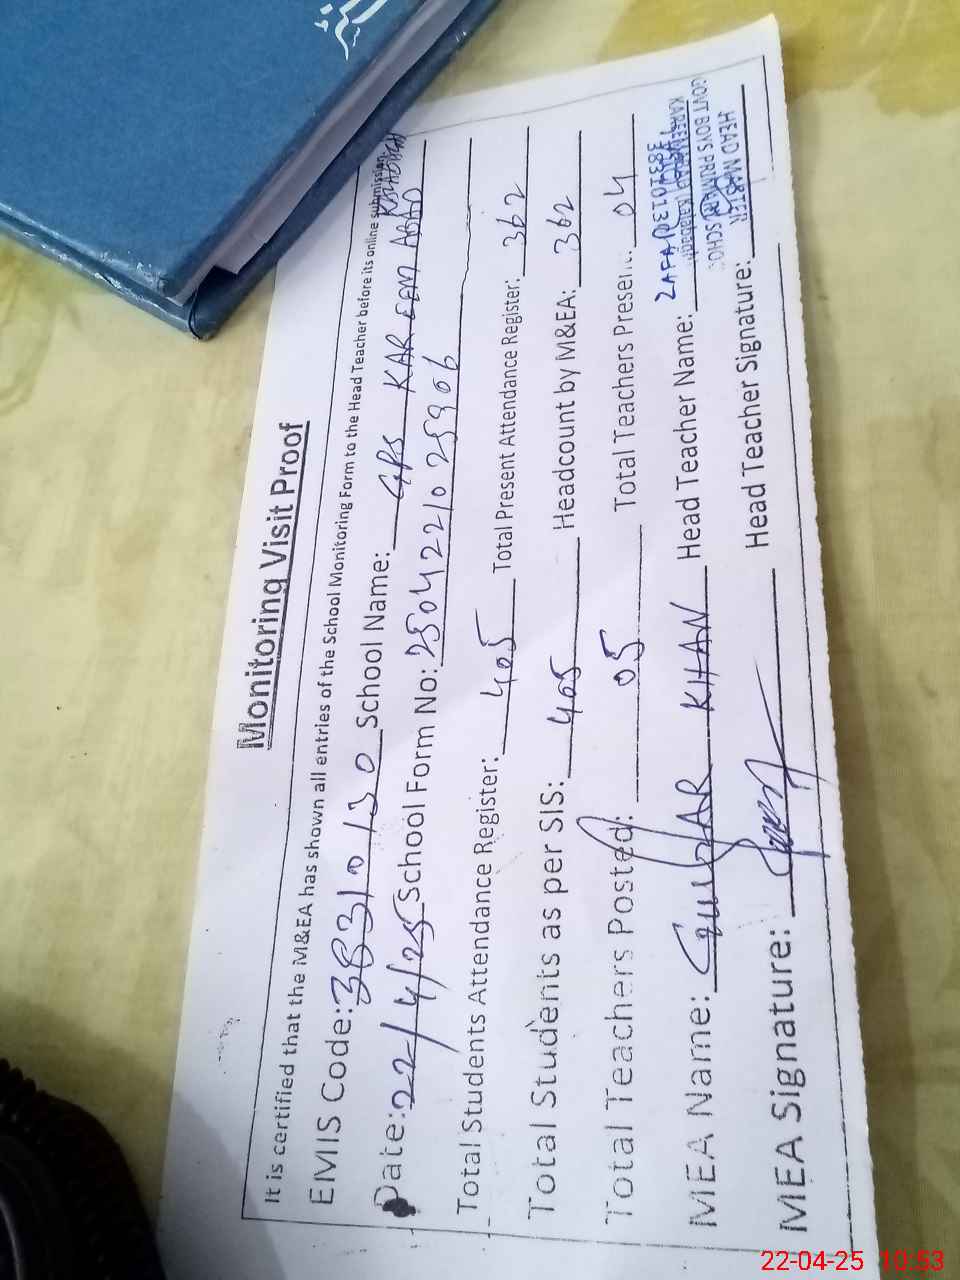 Monitoring Visit Proof
It is certified that the M&EA has shown all entries of the School Monitoring Form to the Head Teacher before its online submission.
EMIS Code: 38310130 School Name: GPS KAREEM ABAD KALABAGH
Date: 22/4/25 School Form No: 25042210253906
Total Students Attendance Register: 405 Total Present Attendance Register: 362
Total Students as per SIS: 405 Headcount by M&EA: 362
Total Teachers Posted: 05 Total Teachers Present: 04
MEA Name: KHAN Head Teacher Name:
MEA Signature: Head Teacher Signature:
HEAD MASTER
GOVT BOYS PRIMARY SCHOOL
Kalabagh
38310130
22-04-25 10:53